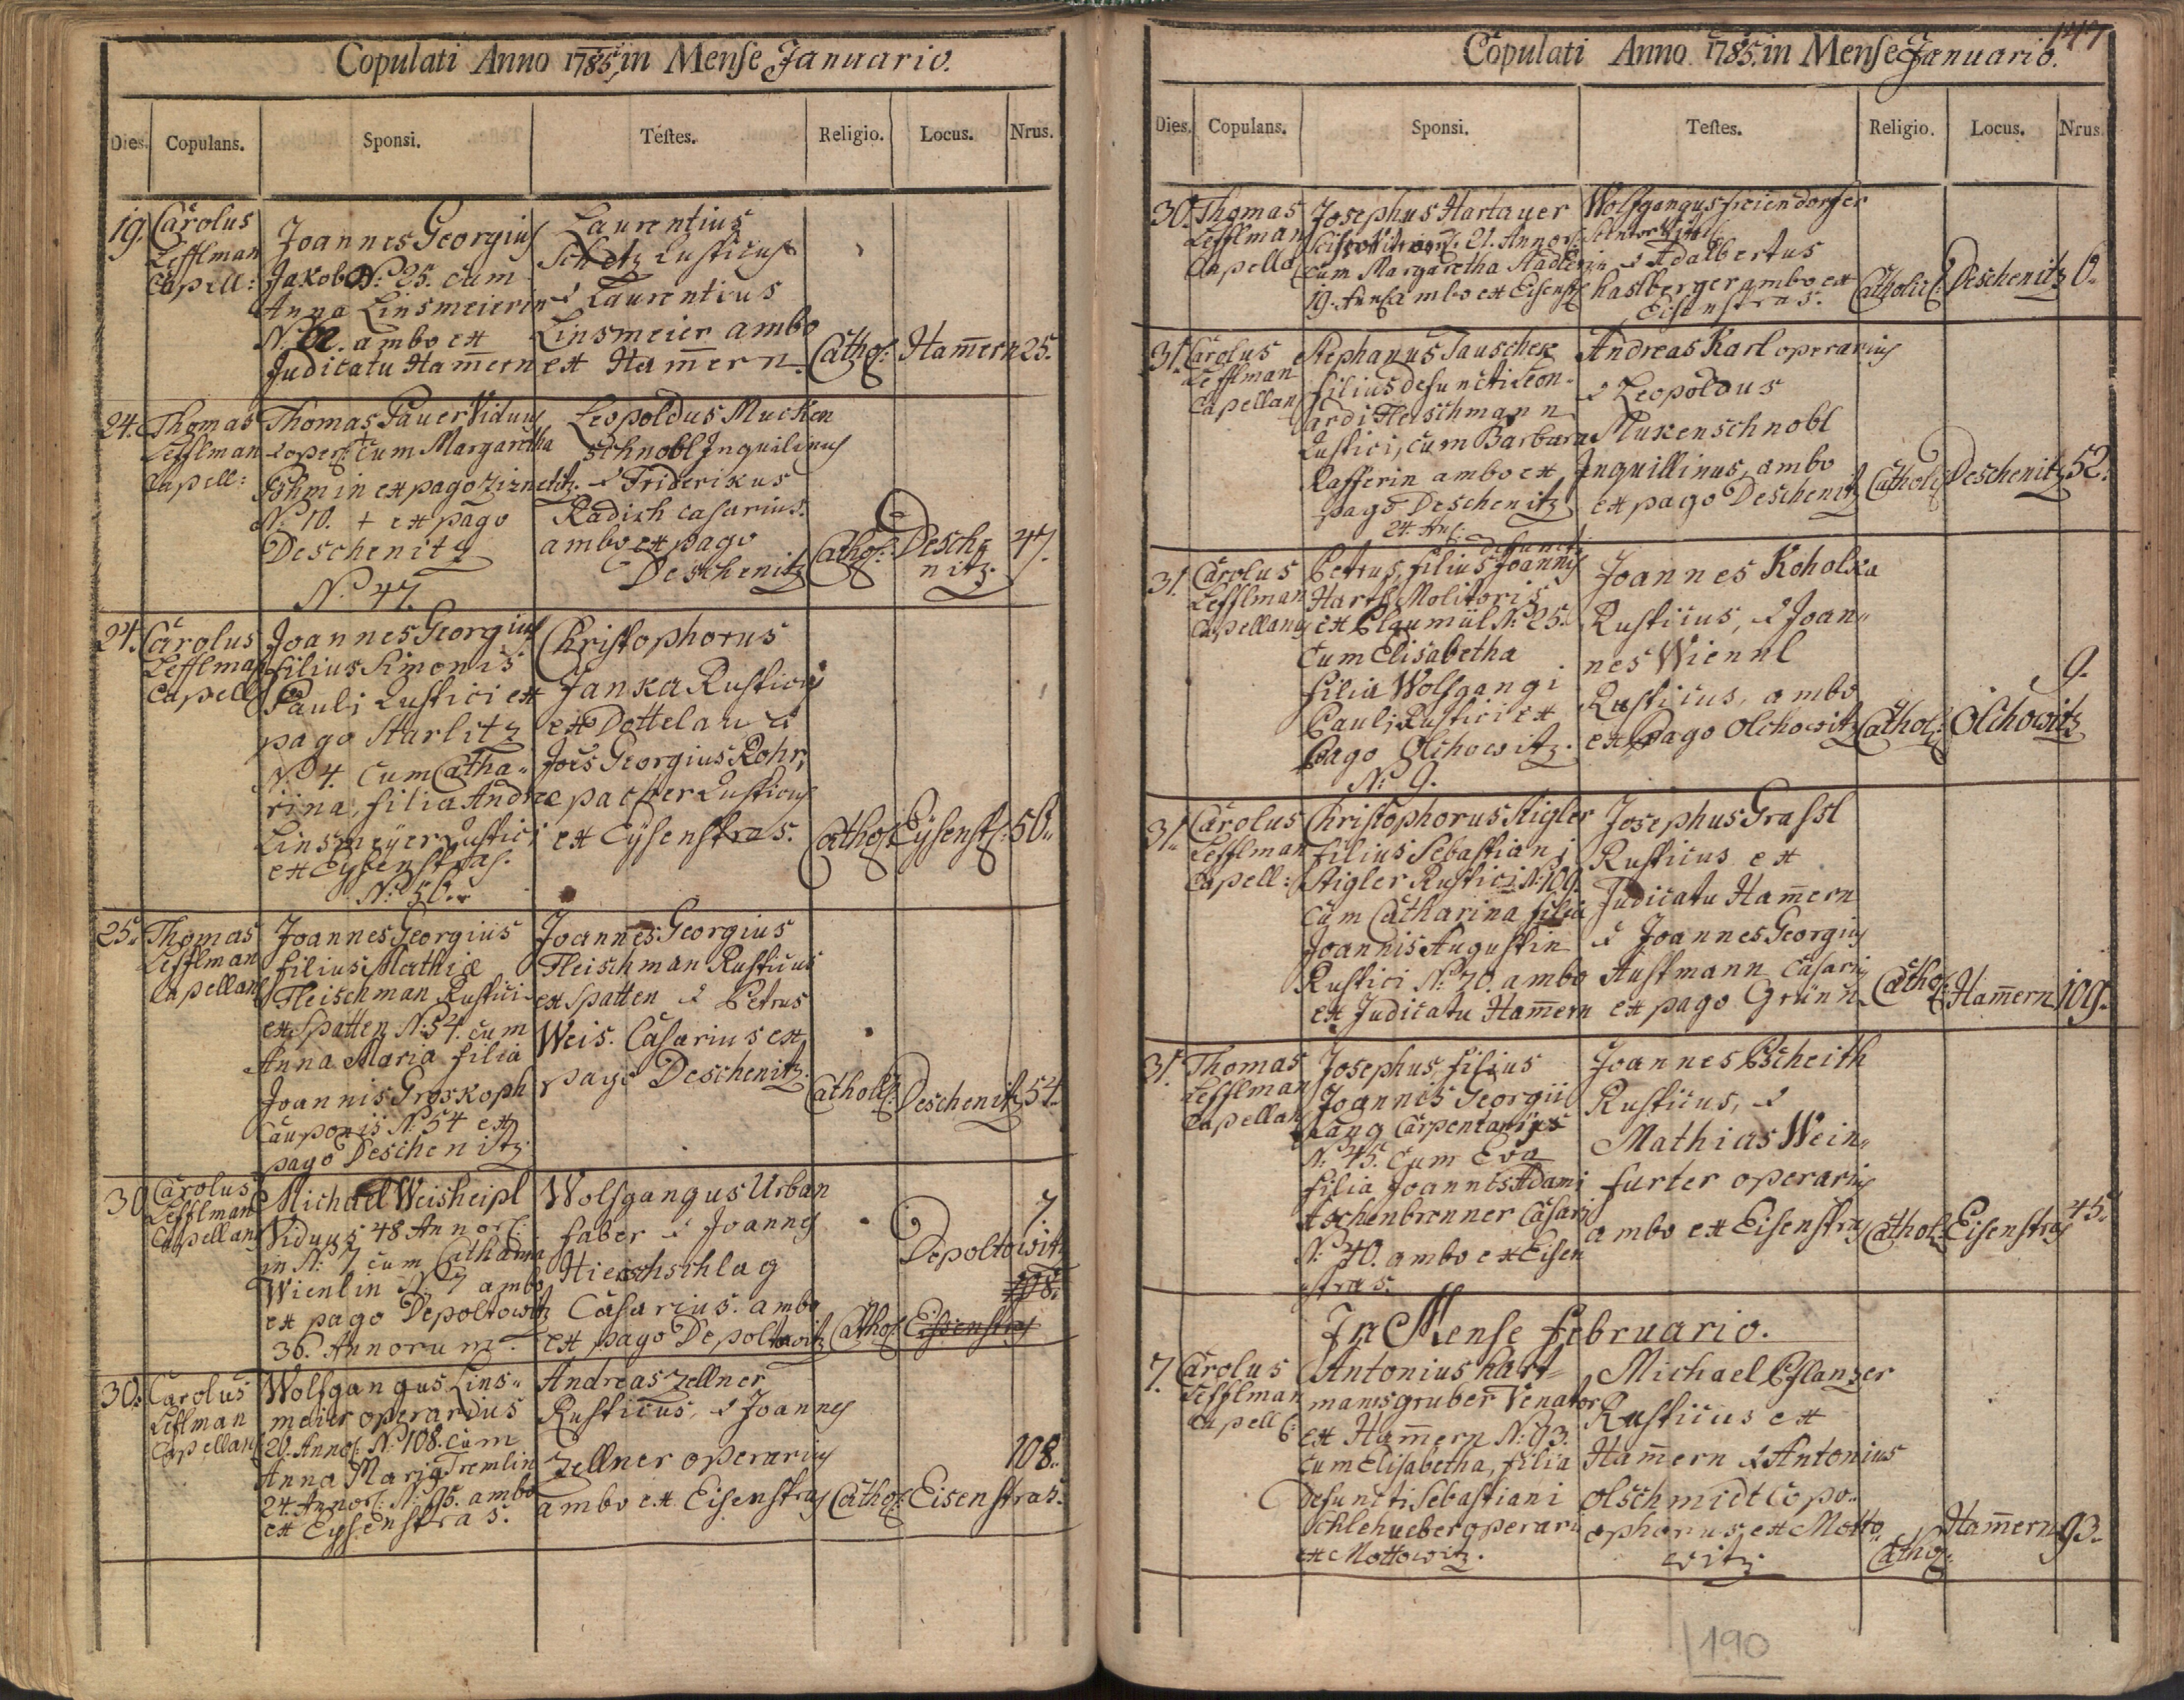 Copulati Anno 1785, in Mense Januario.
Dies. Copulans. Sponsi. Testes. Religio. Locus. Nrus.
19. Carolus
Lefflman
Capell:
Joannes Georgius
Jakob N: 25. cum
Anna Linsmeierin
ambo ex
Judicatu Ham̄ern
Laurentius
Rusticus
& Laurentius
Linsmeier ambo
ex Ham̄ern.
Cathol:
Ham̄ern
25.
24. Thomas
Lefflman
Capell:
Thomas Pauer Viduus
& oper: cum Margaretha
Böhmin ex pago Ziznetitz.
N: 10. + ex pago
Deschenitz
N: 47.
Leopoldus Mucken
schnobl Inquilinus
& Friderikus
Radixh casarius.
ambo ex pago
Deschenitz
Cathol:
Desche
nitz.
47.
24. Carolus
Lefflman
Capell:
Joannes Georgius
filius Simonis
Pauli Rustici ex
pago Starlitz
N: 4. cum Catha„
rina, filia Andreæ
Linsmeÿer Rustici
ex Eysenstras.
N: 50.
Christophorus
Janka Rusticus
ex Dottelau &
Joēs Georgius Rohr,
pacher Rusticus
ex Eÿsenstras.
Cathol:
Eÿsenst:
50„
25. Thomas
Lefflman
Capellan:
Joannes Georgius
filius Mathiæ
Fleischman Rustici
ex Spatten N: 54. cum
Anna Maria filia
Joannis Groskoph
Cauponis N: 54 ex
pago Deschenitz.
Joannes Georgius
Fleischman Rusticus
ex Spatten & Petrus
Weis. Casarius ex
pago Deschenitz.
Catholi:
Deschenitz
54.
30. Carolus
Lefflman
Capellanus
Michael Weisheipl
Viduus 48 Annor:
in N: 7 cum Catharina
Wienlin N: 7 ambo
ex pago Depoltowitz
36. Annorum.
Wolfgangus Urban
faber & Joannes
Hieschschlag
Casarius. ambo
ex pago Depoltowitz
Cathol:
7
Depoltowitz
108.
Eisenstras
30. Carolus
Lefflman
Capellan:
Wolfgangus Lins„
meier operardus
20. Annor: N: 108. cum
Anna Maria Tremlin
24. Annor: N: 95. ambo
ex Eysenstras.
Andreas Zellner
Rusticus, & Joannes
Zellner operarius
ambo ex Eisenstras
Cathol:
Eisenstras.
108.
147
Copulati Anno 1785. in Mense Januario.
Dies. Copulans. Sponsi. Testes. Religio. Locus. Nrus.
30. Thomas
Lefflman
Capella:
Josephus Hartauer
21. Annor:
cum Margaretha Stadlerin
19. Annor: ambo ex Eisenst:
Wolfgangus
& Adalbertus
haslberger ambo ex
Eisenstras.
Catholic:
Deschenitz
6.
31. Carolus
Lefflman
Capellan:
Stephanus Tauschek
filius defuncti Leon„
ardi Fleischmann
Rustici, cum Barbara
Rafferin ambo ex
pago Deschenitz
24. An:
Andreas Karl operarius
& Leopoldus
Mukenschnobl
Inquillinus, ambo
ex pago Deschenitz
Catholi:
Deschenitz
52.
31. Carolus
Lefflman
Capellanus
Petrus, filius Joannis
defuncti
Hartl Molitoris
ex Plaumül N: 25.
cum Elisabetha
filia Wolfgangi
Pauli Rustici ex
Pago Olchowitz.
N: 9.
Joannes Koholka
Rusticus, & Joan„
nes Wiennl
Rusticus, ambo
ex Pago Olchowitz
Cathol:
Olchowitz
9.
31. Carolus
Lefflman
Capell:
Christophorus Stigler
filius Sebastiani
Stigler Rustici N: 109.
cum Catharina filia
Joannis Augustin
Rustici N: 70. ambo
ex Judicatu Ham̄ern
Josephus Grassl
Rusticus ex
Judicatu Ham̄ern
& Joannes Georgius
Austmann Casarius
ex pago Grünn
Cathol:
Ham̄ern
109.
31. Thomas
Lefflman
Capellan
Josephus, filius
Joannis Georgii
Lang Carpentarius
N: 45. cum Eva
filia Joannis Adami
Aschenbrenner Casarii
N: 40. ambo ex Eisen
stras.
Joannes Pscheith
Rusticus, &
Mathias Wein„
furter operarius
ambo ex Eisenstras
Cathol:
Eisenstras
45.
In Mense Februario.
7. Carolus
Lefflman
Capell:
Antonius hart„
mansgruber Venator
ex Ham̄ern N: 93.
cum Elisabetha, filia
defuncti Sebastiani
Schlehueber operarii
ex Mottowitz.
Michael Pflanzer
Rusticus ex
Ham̄ern & Antonius
Olschmidt Copo„
ophorus, ex Motto„
witz.
Cathol:
Ham̄ern
93.
190